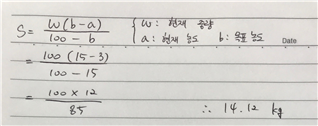 S = W(b-a) / 100 - b { W : 현재 중량
a : 현재 농도 b : 목표 농도 Date
= 100 (15-3) / 100 - 15
= 100 × 12 / 85 ∴ 14.12 kg